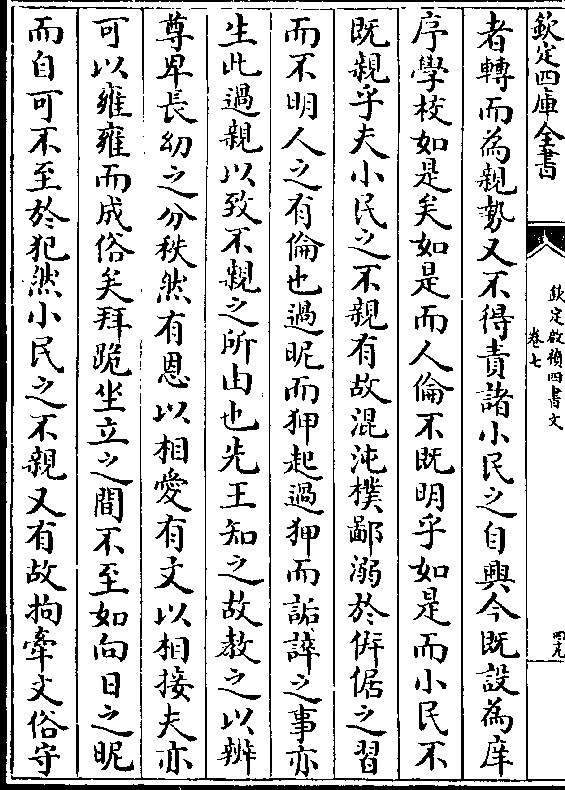 欽定四庫全書
欽定啟禎四書文
卷七
四九
者轉而為親勢又不得責諸小民之自興今既設為庠
序學校如是矣如是而人倫不既明乎如是而小民不
既親乎夫小民之不親有故混沌樸鄙溺於僻倨之習
而不明人之有倫也過昵而狎起過狎而詬誶之事亦
生此過親以致不親之所由也先王知之故教之以辨
尊卑長幼之分秩然有恩以相愛有文以相接夫亦
可以雍雍而成俗矣拜跪坐立之間不至如向日之昵
而自可不至於犯然小民之不親又有故拘牽文俗守